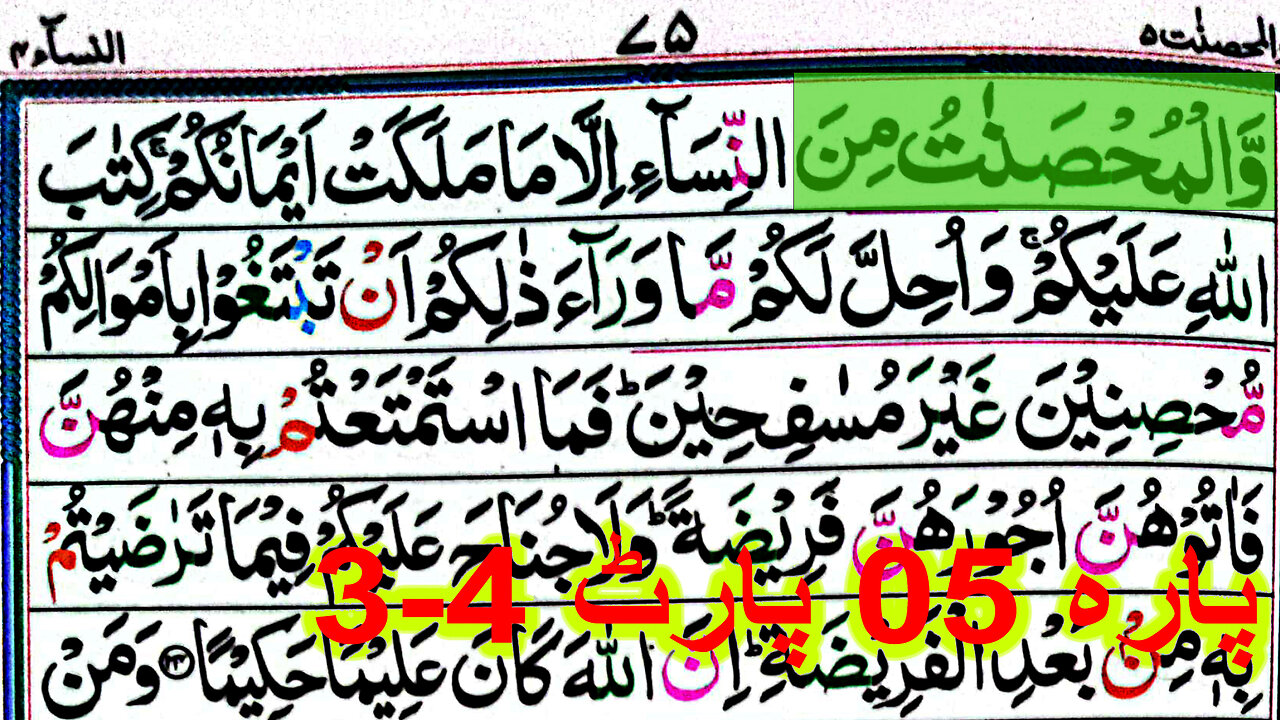 المحصنٰت ۵ ۷۵ النسآء ۴
وَّالْمُحْصَنٰتُ مِنَ النِّسَآءِ اِلَّا مَا مَلَكَتْ اَيْمَانُكُمْ ۚ كِتٰبَ
اللّٰهِ عَلَيْكُمْ ۚ وَاُحِلَّ لَكُمْ مَّا وَرَآءَ ذٰلِكُمْ اَنْ تَبْتَغُوْا بِاَمْوَالِكُمْ
مُّحْصِنِيْنَ غَيْرَ مُسٰفِحِيْنَ ؕ فَمَا اسْتَمْتَعْتُمْ بِهٖ مِنْهُنَّ
فَاٰتُوْهُنَّ اُجُوْرَهُنَّ فَرِيْضَةً ؕ وَلَا جُنَاحَ عَلَيْكُمْ فِيْمَا تَرٰضَيْتُمْ
پارہ 05 پارٹ 4-3
بِهٖ مِنْۢ بَعْدِ الْفَرِيْضَةِ ؕ اِنَّ اللّٰهَ كَانَ عَلِيْمًا حَكِيْمًا ﴿۲۴﴾ وَمَنْ